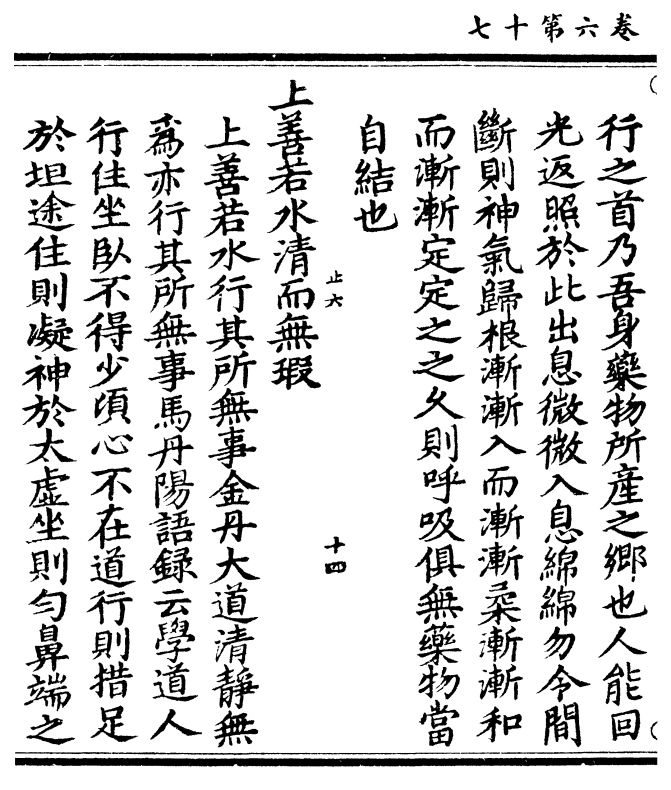 卷六第十七
行之首乃吾身藥物所産之鄉也人能回
光返照於此出息微微入息綿綿勿令間
斷則神氣歸根漸漸入而漸漸柔漸漸和
而漸漸定定之之久則呼吸俱無藥物當
自結也
止六
十四
上善若水清而無瑕
上善若水行其所無事金丹大道清靜無
爲亦行其所無事馬丹陽語録云學道人
行住坐臥不得少頃心不在道行則措足
於坦途住則凝神於太虛坐則匀鼻端之